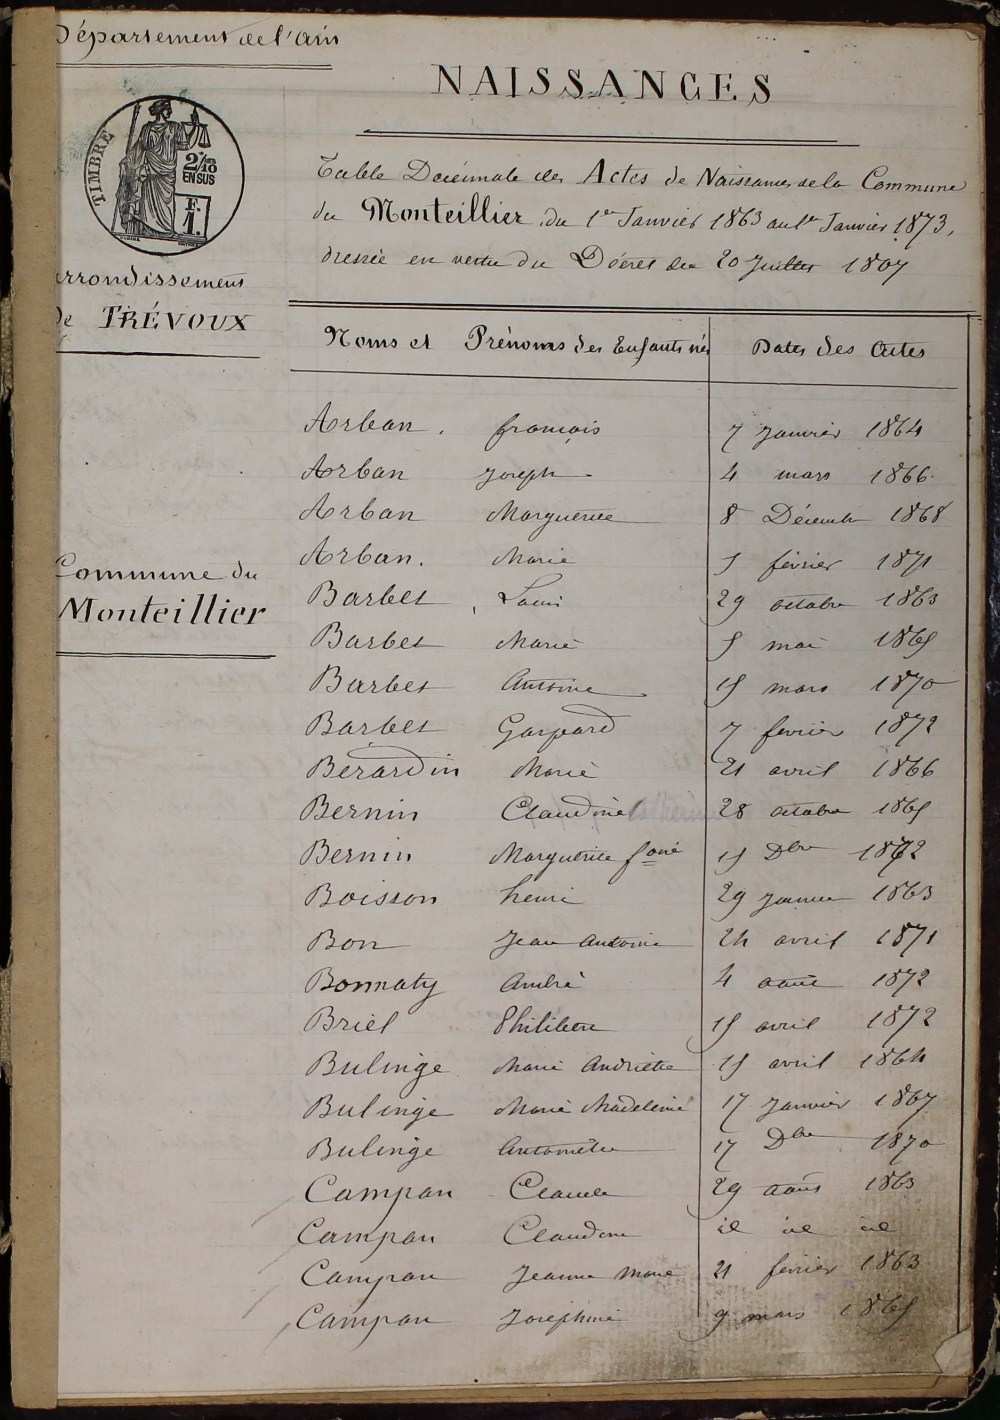 Département de l'Ain
TIMBRE
2/10
EN SUS
F.
1.
arrondissement
de TRÉVOUX
Commune du
Monteillier
NAISSANCES
Table Décennale des Actes de Naissances de la Commune
du Monteillier, du 1er Janvier 1863 au 1er Janvier 1873,
dressée en vertu du Décret du 20 Juillet 1807
Noms et Prénoms des Enfants nés Dates des Actes
Arban. françois 7 Janvier 1864
Arban Joseph 4 mars 1866
Arban Marguerite 8 Décembre 1868
Arban. Marie 5 février 1871
Barbet Louis 29 octobre 1863
Barbet Marie 5 mai 1865
Barbet Antoine 15 mars 1870
Barbet Gaspard 7 février 1872
Bérardin Marie 21 avril 1866
Bernin Claudine 28 octobre 1865
Bernin Marguerite foise 15 Dbre 1872
Boisson henri 29 Janvier 1863
Bon Jean Antoine 24 avril 1871
Bonnaty André 4 août 1872
Briel Philibert 15 avril 1872
Bulinge Marie Andriette 15 avril 1864
Bulinge Marie Madeleine 17 Janvier 1867
Bulinge Antoinette 17 Dbre 1870
Campan Claude 29 août 1863
Campan Claudine id id id
Campan Jeanne Marie 21 février 1863
Campan Joséphine 9 mars 1865